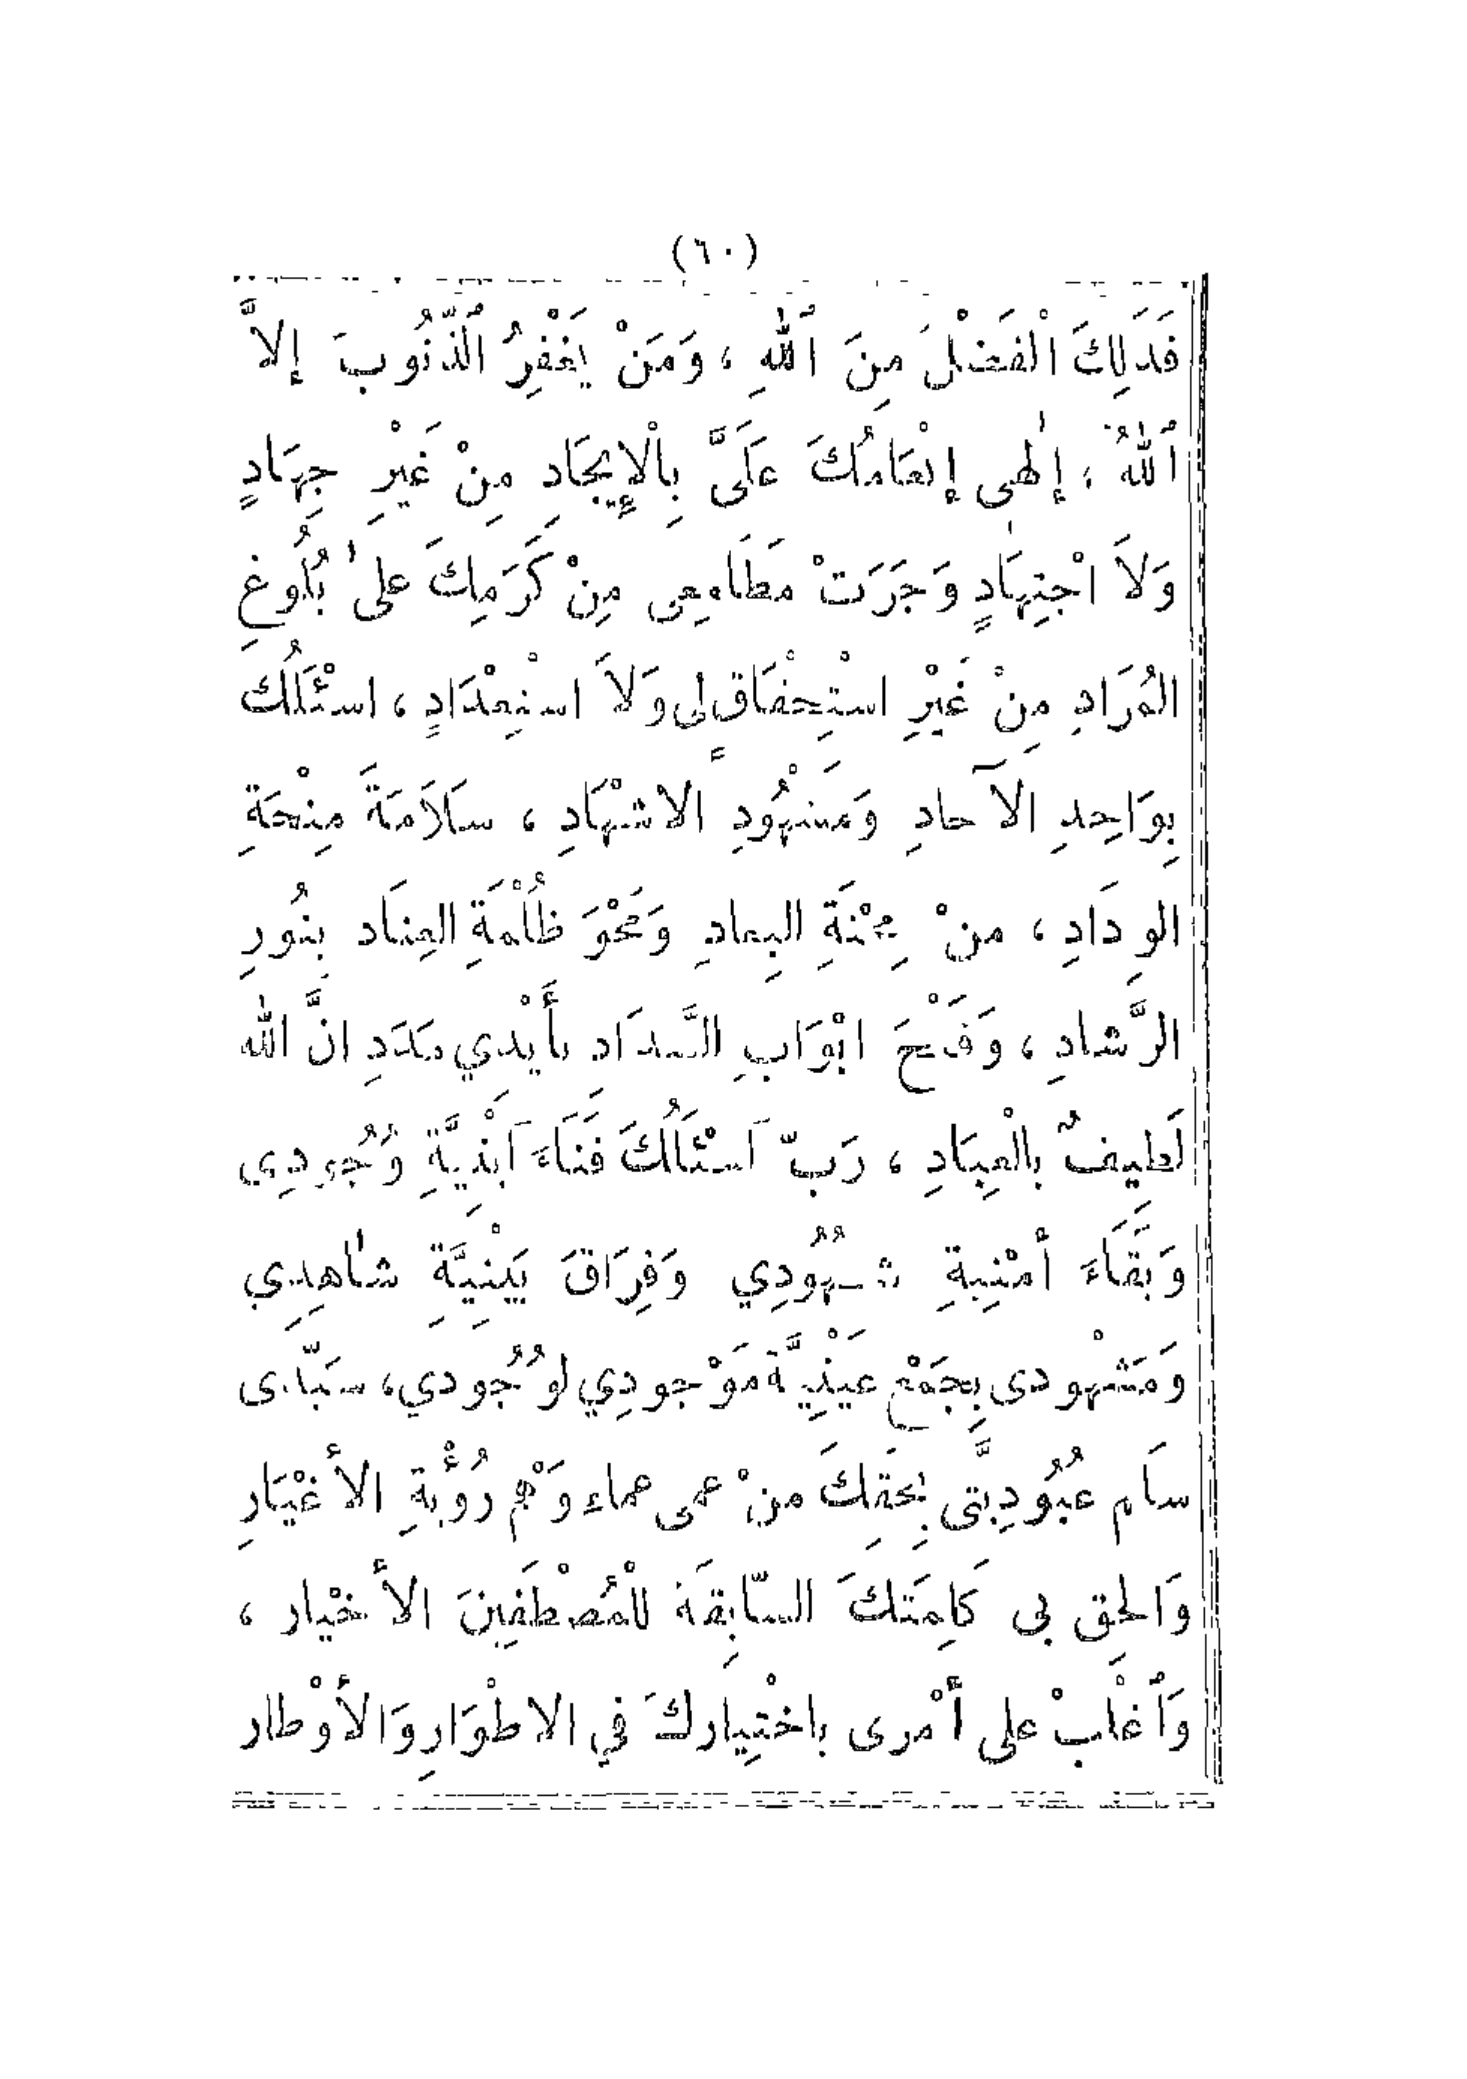 (٦٠)
فَذَلِكَ الْفَضْلُ مِنَ ٱللهِ ، وَمَنْ يَغْفِرُ ٱلذُّنُوبَ إِلاَّ
ٱللهُ ، إِلٰهى إِنْعَامُكَ عَلَىَّ بِالْإِيجَادِ مِنْ غَيْرِ جِهَادٍ
وَلاَ اجْتِهَادٍ وَجَرَتْ مَطَامِعِى مِنْ كَرَمِكَ عَلىٰ بُلُوغِ
المُرَادِ مِنْ غَيْرِ اسْتِحْقَاقٍ لِى وَلاَ اسْتِعْدَادٍ ، اسْئَلُكَ
بِوَاحِدِ الآحادِ وَمَشْهُودِ الاشْهَادِ ، سَلاَمَةَ مِنْحَةِ
الوِدَادِ ، منْ مِحْنَةِ البِعادِ وَمَحْوَ ظُلْمَةِ العِنَاد بِنُورِ
الرَّشادِ ، وَفَتْحَ ابْوَابِ السَّدَادِ بأَيْدِي مَدَدِ انَّ الله
لَطِيفٌ بالْعِبَادِ ، رَبّ اَسْئَلُكَ فَنَاءَ اَنِيَّةِ وُجُودِي
وَبَقَاءَ أمْنِيةِ شُهُودِي وَفِرَاقَ بَيْنِيَّةِ شاهِدِي
وَمَشْهودى بِجَمْعِ عَيْنِيَّة مَوْجودِي لوُجُودي، سَيّدى
سَلم عُبُودِيتَّى بِحَقِكَ منْ عمى عماء وَهْم رُؤْيةِ الأغْيَارِ
وَالحِق بى كَلِمَتَكَ السّابِقَة للْمُصْطَفِينَ الأخْيار ،
وَٱغْلِبْ على أَمْرى باخْتِيارِكَ في الاطْوَارِ وَالأوْطار